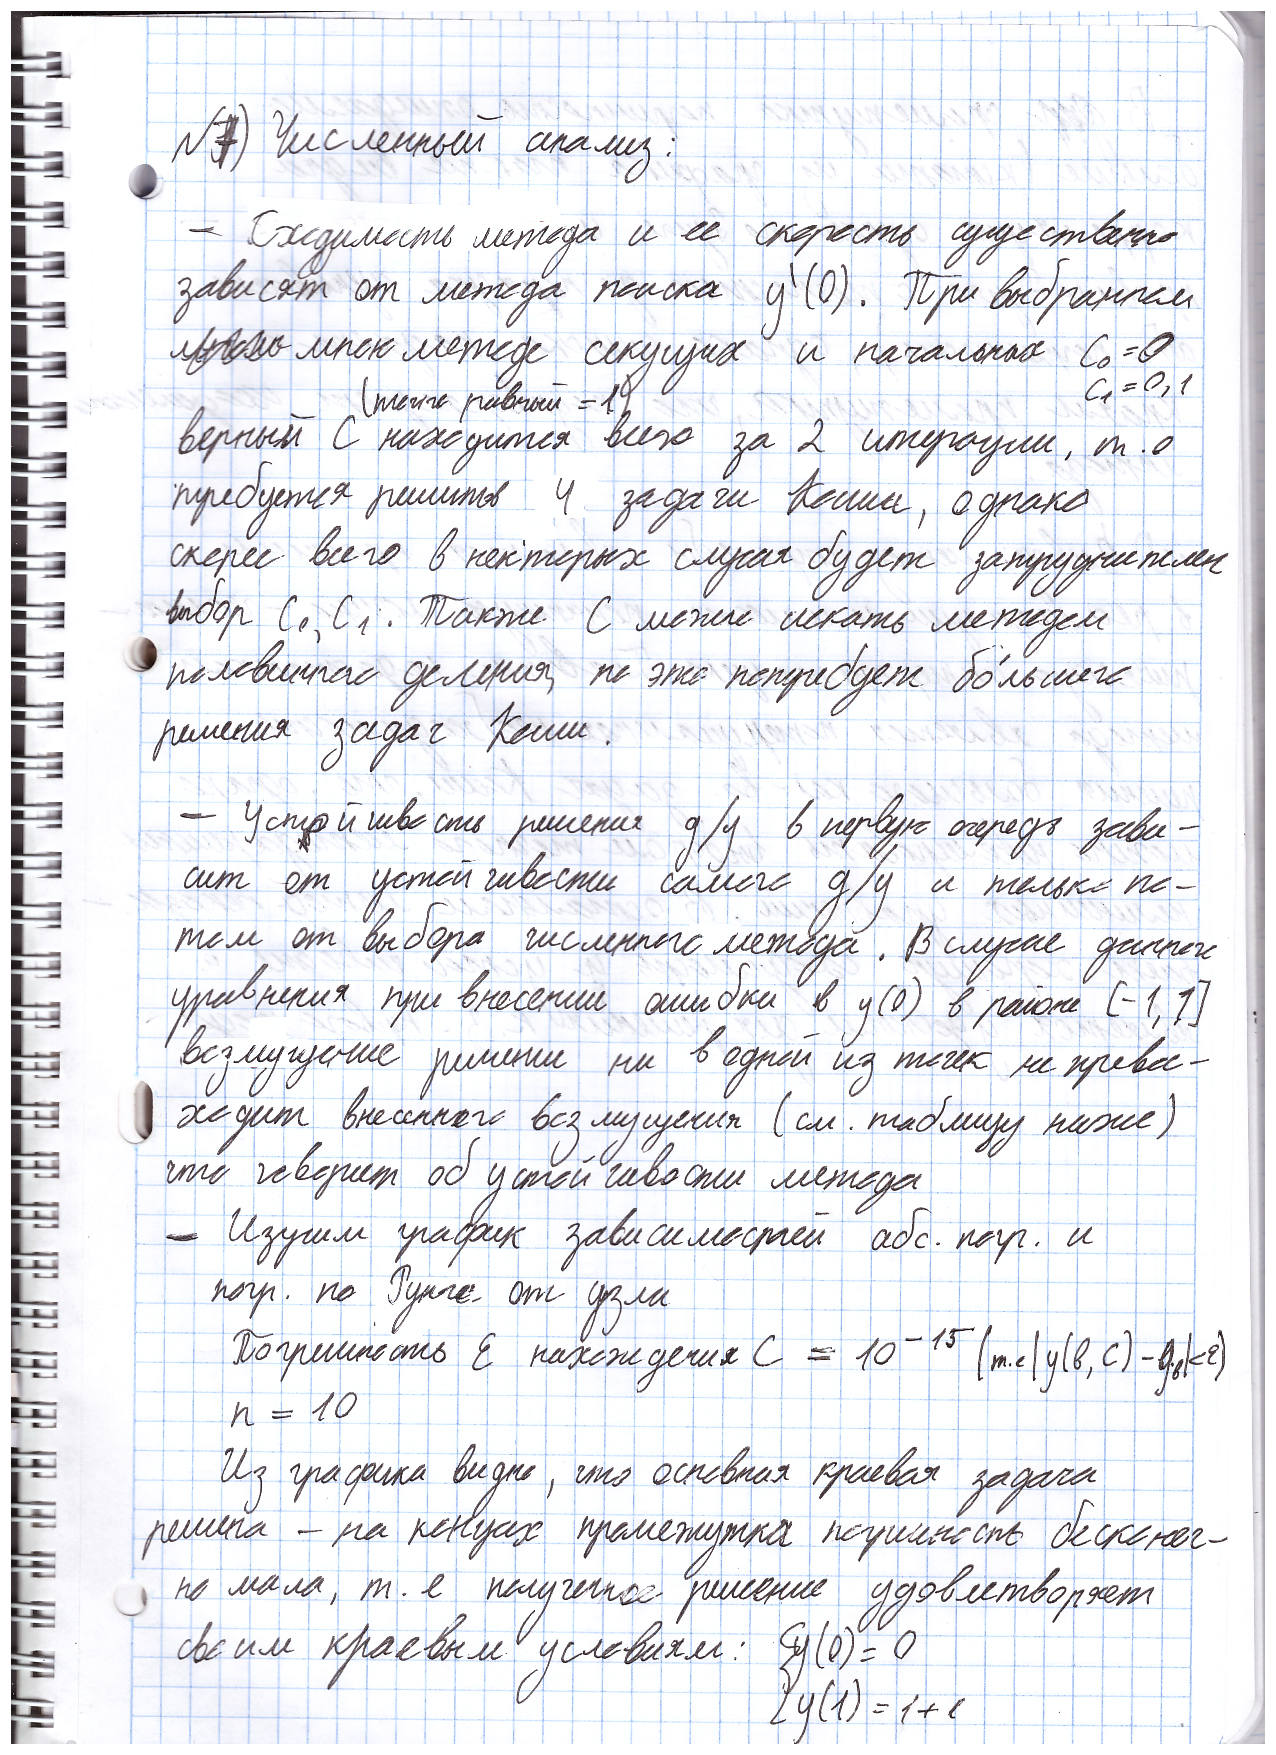 №7) Численный анализ:
– Сходимость метода и ее скорость существенно
зависят от метода поиска y'(0). При выбранном
мною методе секущих и начальных C₀=0
C₁=0,1
(точно равный =1)
верный C находится всего за 2 итерации, т.о
требуется решить 4 задачи Коши, однако
скорее всего в некторых случая будет затруднителен
выбор C₀, C₁. Также C можно искать методом
половинного деления, но это потребует бо́льшего
решения задач Коши.
– Устойчивость решения д/у в первую очередь зави-
сит от устойчивости самого д/у и только по-
том от выбора численного метода. В случае данного
уравнения при внесении ошибки в y(0) в районе [-1,1]
возмущение решение ни в одной из точек не прево-
ходит внесенного возмущения (см. таблицу ниже)
что говорит об устойчивости метода
– Изучим график зависимостей абс. погр. и
погр. по Рунге от узла
Погрешность ε нахождения C = 10⁻¹⁵ (т.е |y(b,C)-yb|<ε)
n = 10
Из графика видно, что основная краевая задача
решена – на концах промежутка погрешность бесконеч-
но мала, т.е полученное решение удовлетворяет
своим краевым условиям: {y(0)=0
{y(1)=1+e